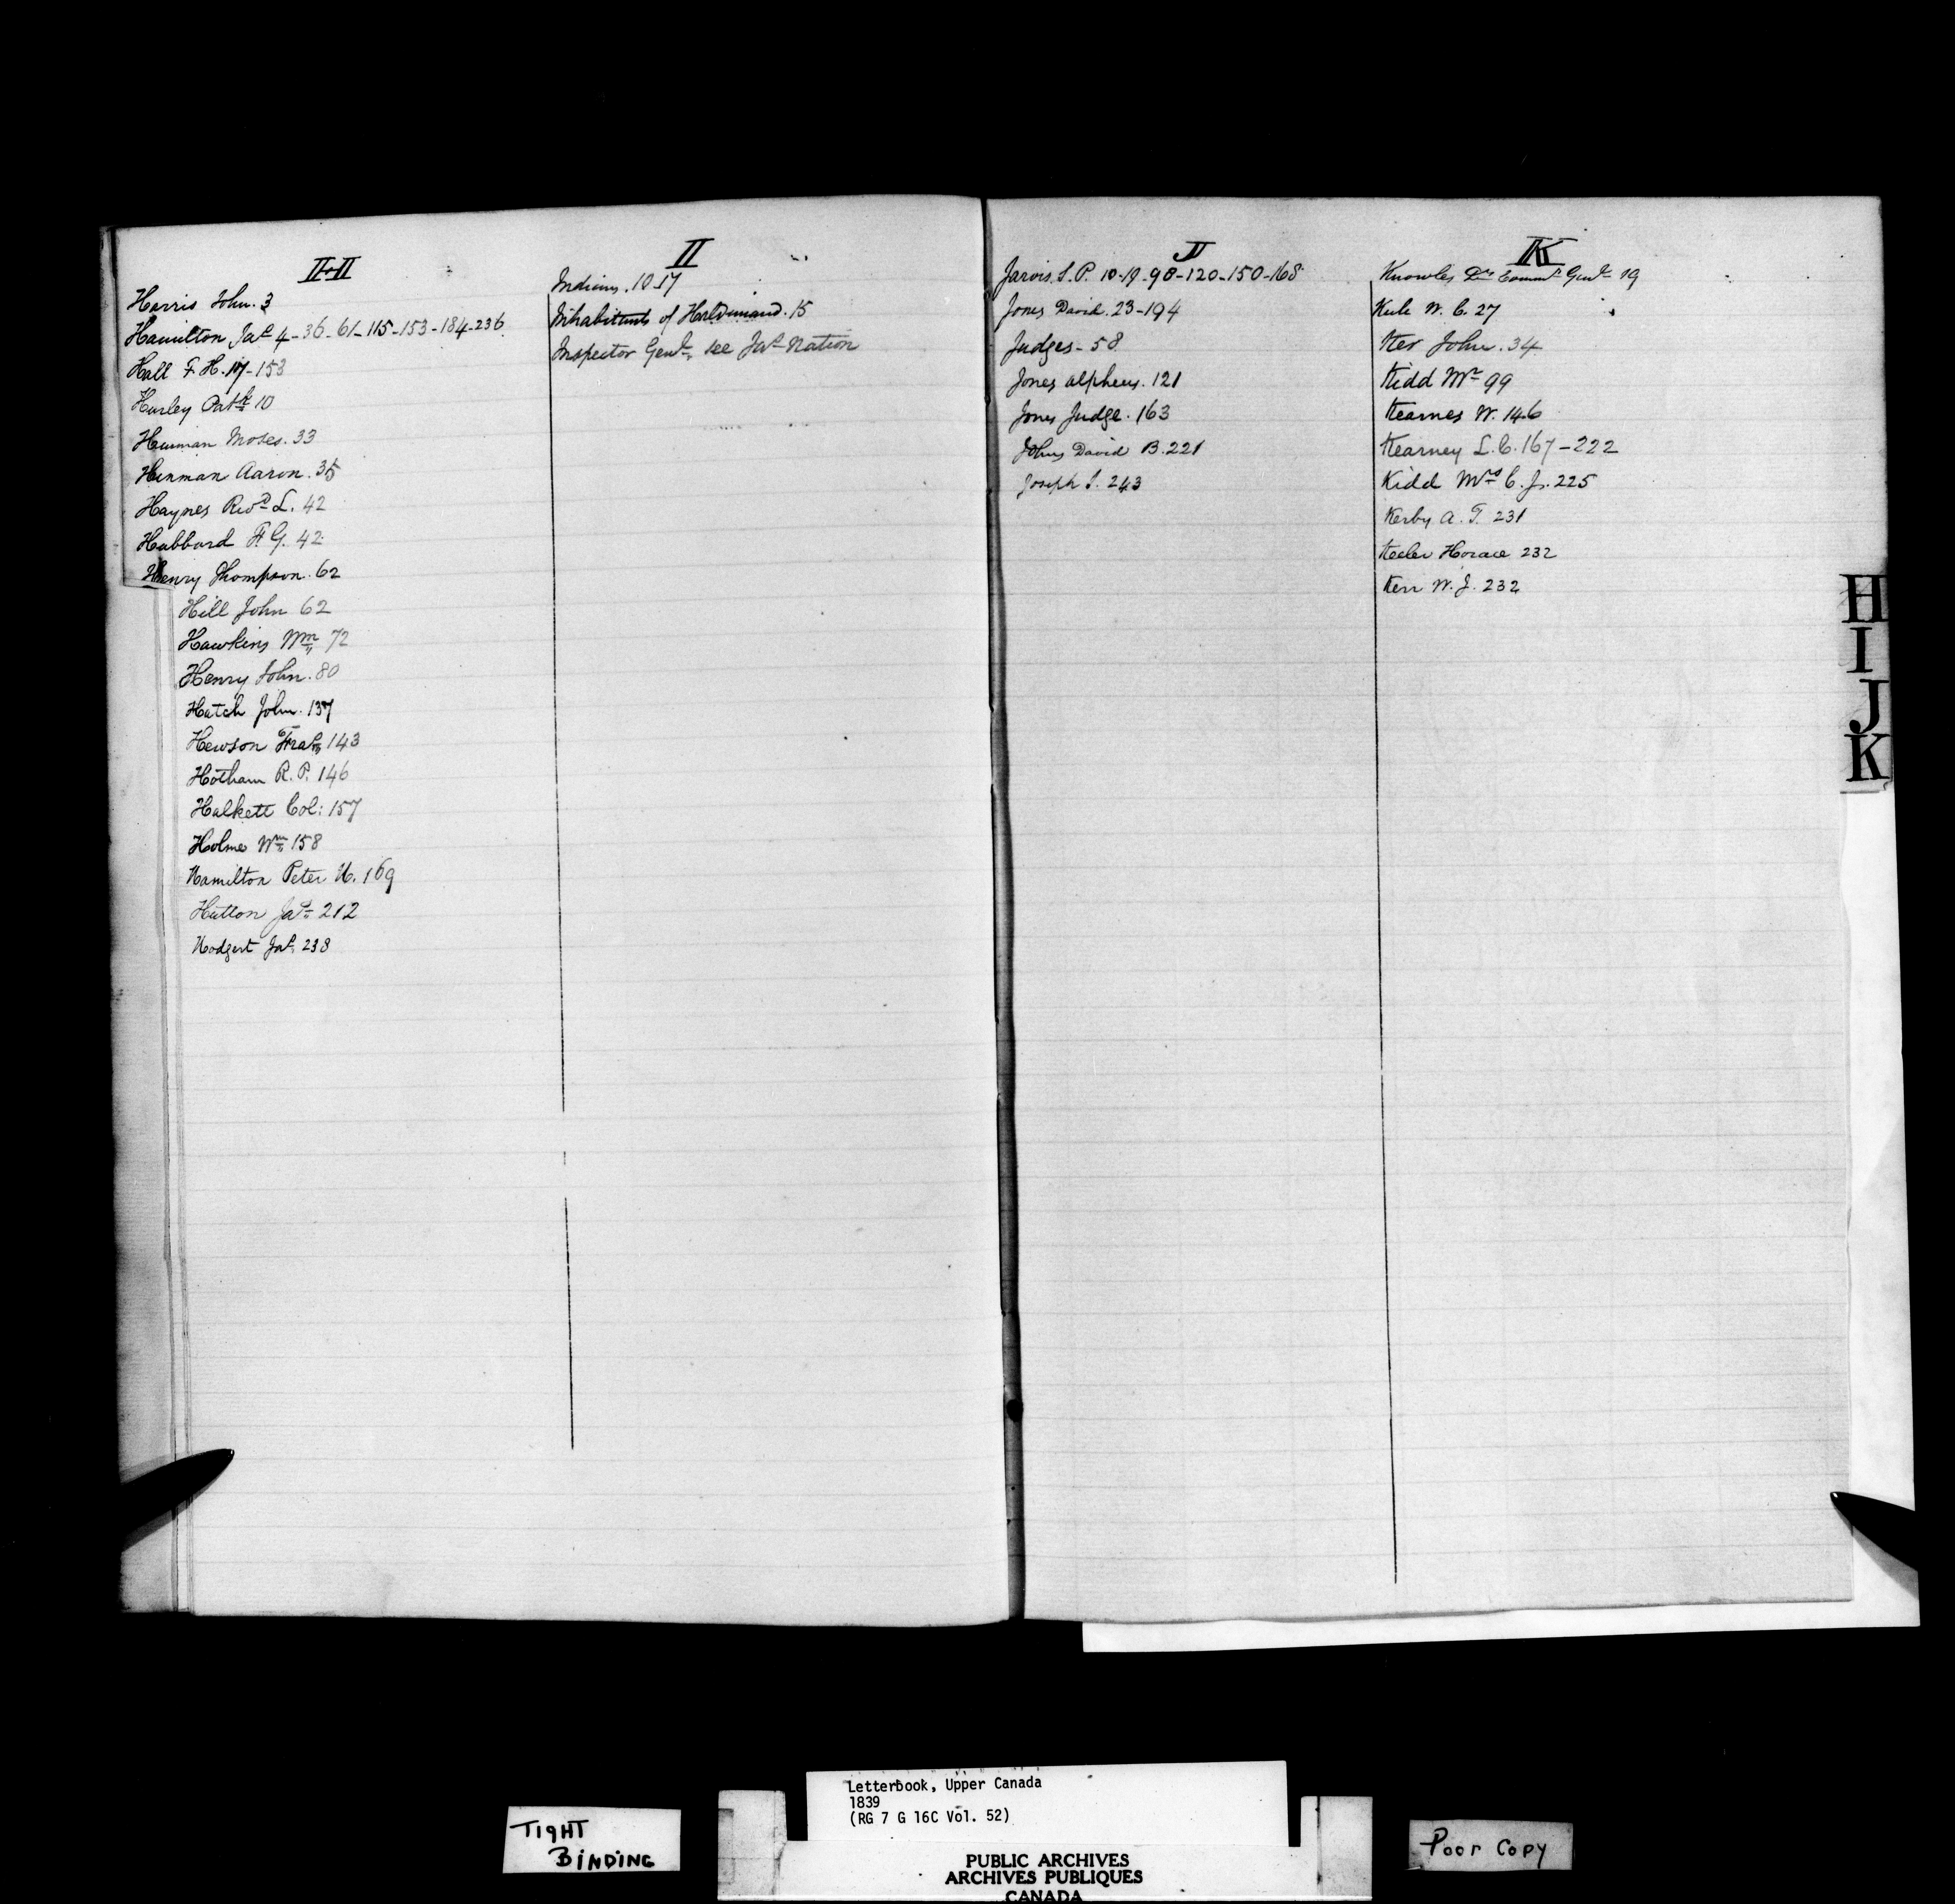 H
Harris John. 3
Hamilton Jas. 4-36-61-115-153-184-236
Hall F. H. 107-153
Hurley Patk 10
Hinman Moses. 33
Hinman Aaron. 35
Haynes Revd L. 42
Hubbard F. G. 42
Henry Thompson. 62
Hill John 62
Hawkins Wm 72
Henry John. 80
Hatch John. 137
Hewson Fras 143
Hotham R. P. 146
Halkett Col: 157
Holme Wm 158
Hamilton Peter H. 169
Hutton Jas 212
Hodgert Jas. 238
I
Indians. 10-17
Inhabitants of Haldimand. 15
Inspector Genl. see Jas Nation
J
Jarvis. S. P. 10-19-98-120-150-168
Jones David. 23-194
Judges-58
Jones Alpheus. 121
Jones Judge. 163
Johns David B. 221
Joseph S. 243
K
Knowles Commt Genl 19
W. C. 27
Ker John. 34
Kidd Mr 99
Kearnes W. 146
Kearney L. C. 167-222
Kidd Mrs C. J. 225
Kerby A. T. 231
Keeler Horace 232
Kerr W. J. 232
H
I
J
K
TIGHT
BINDING
Letterbook, Upper Canada
1839
(RG 7 G 16C Vol. 52)
PUBLIC ARCHIVES
ARCHIVES PUBLIQUES
CANADA
Poor Copy